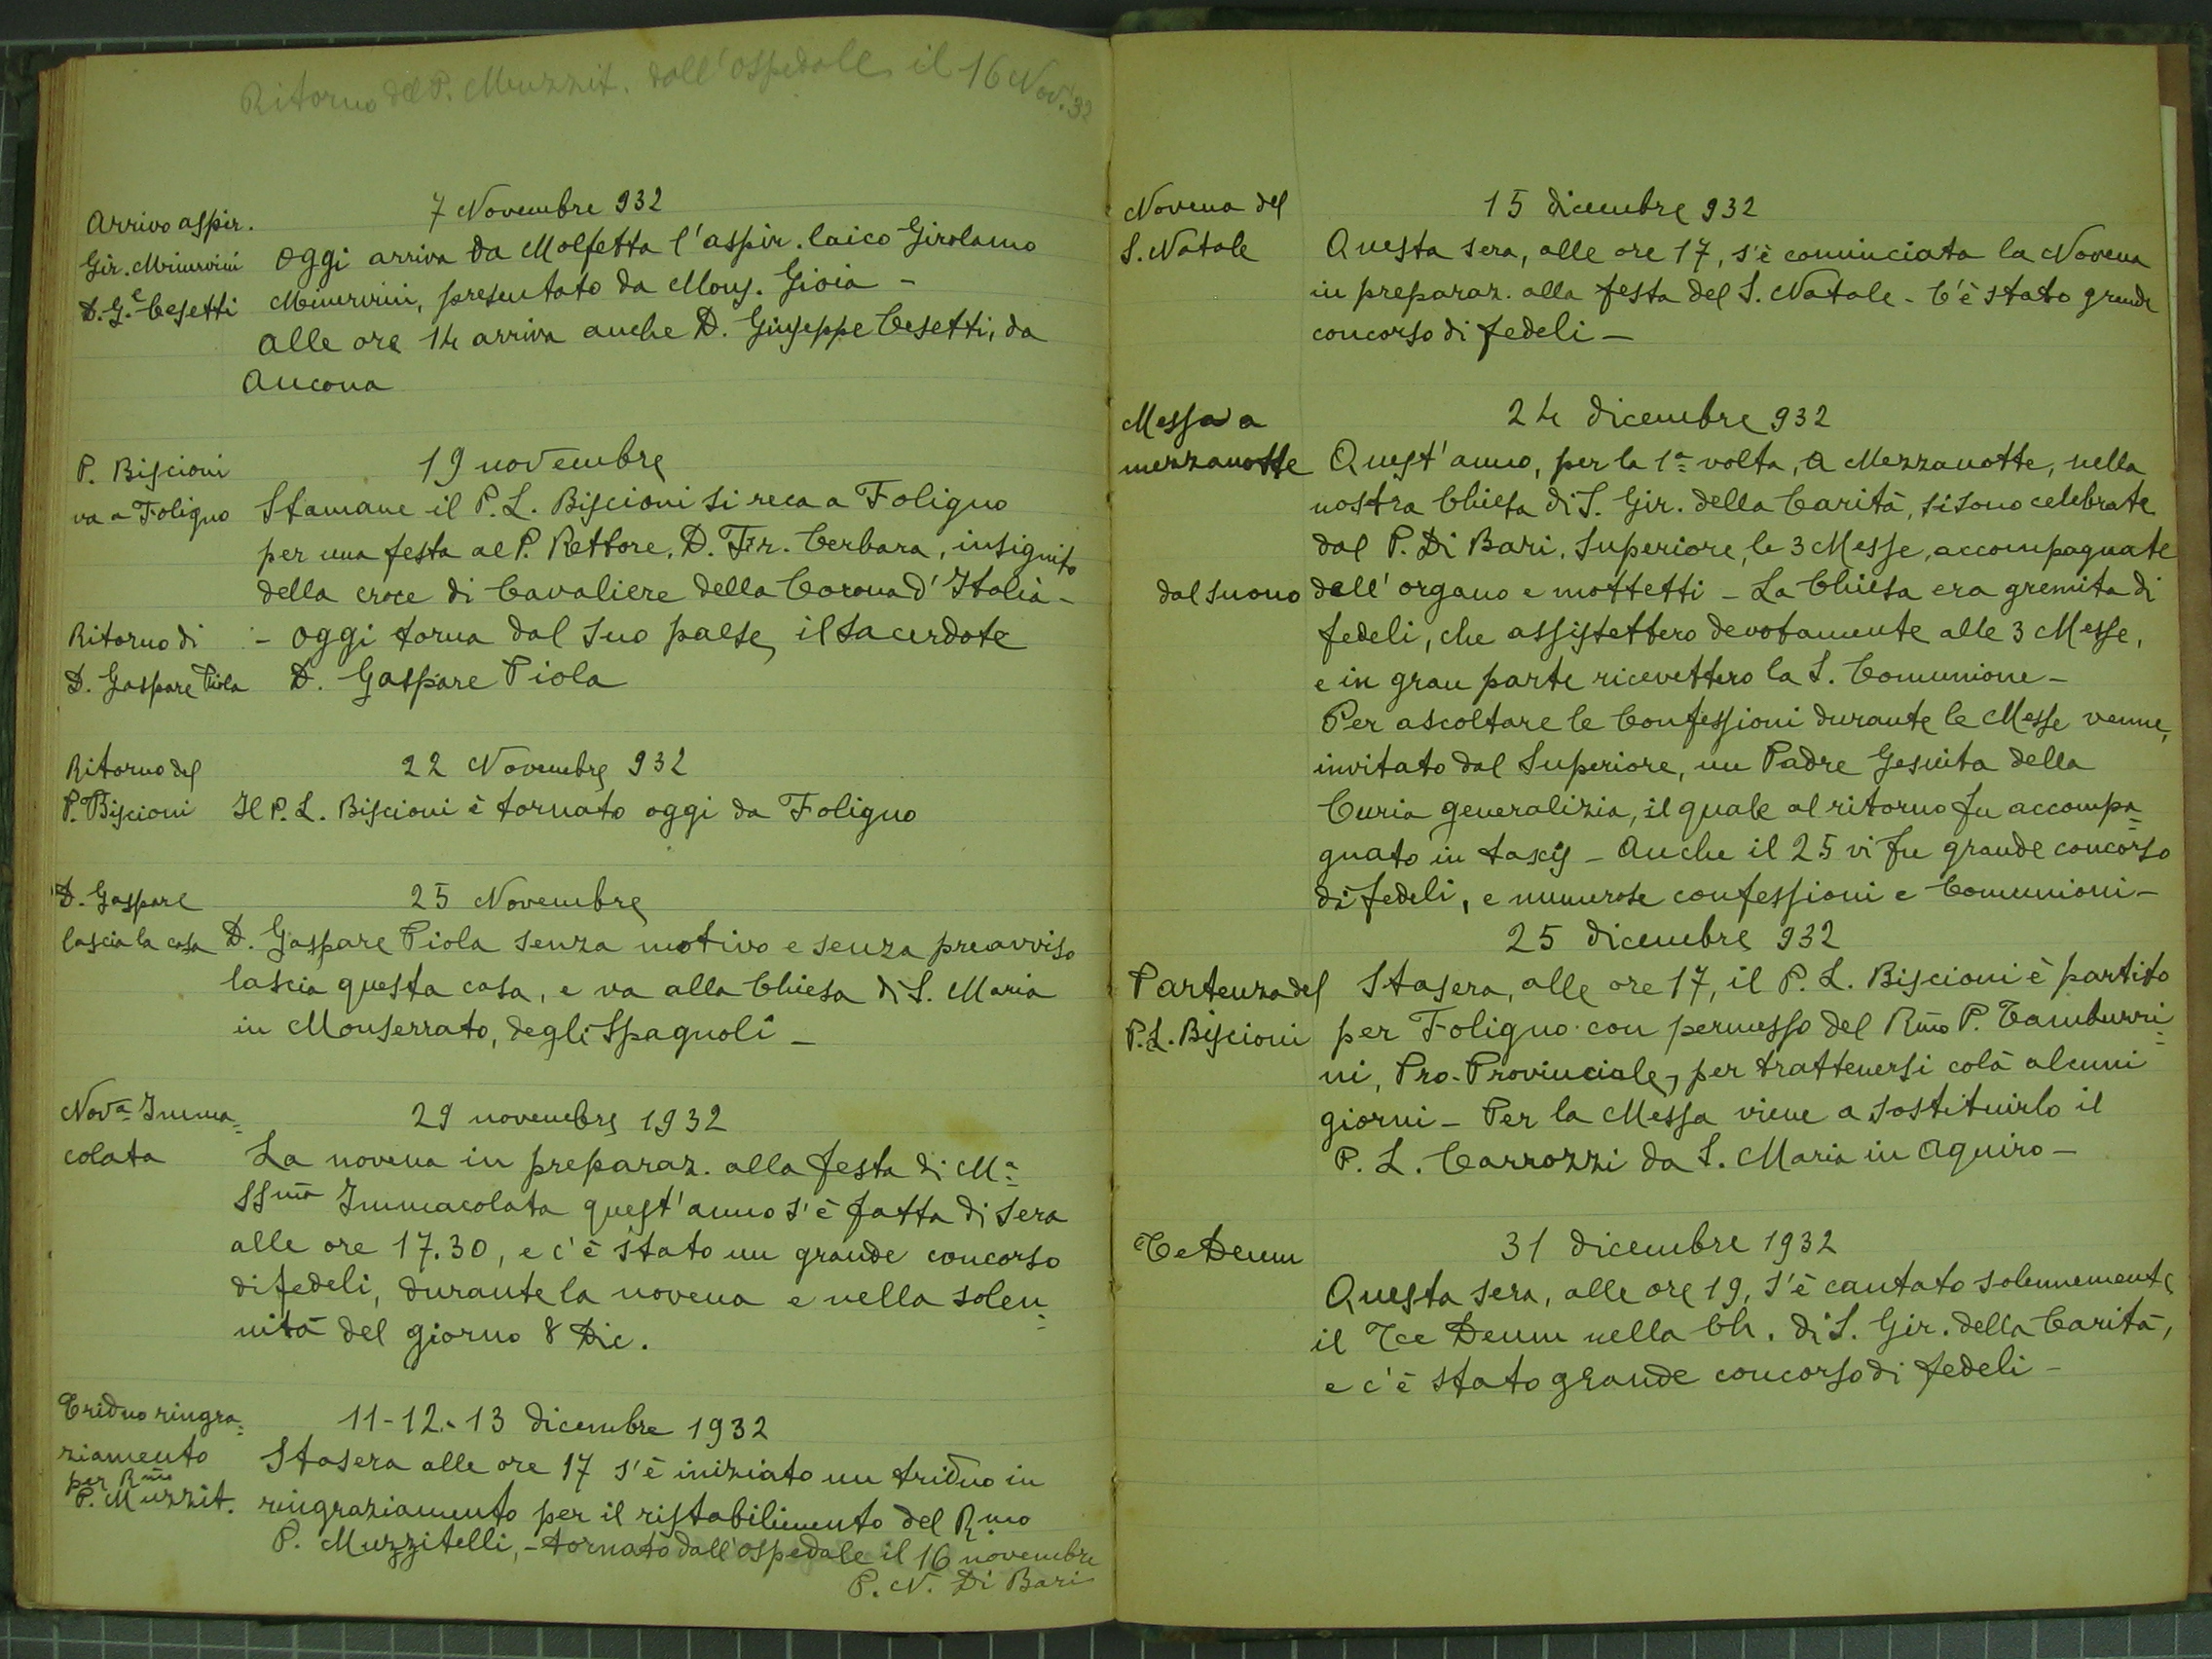 Ritorno del P. Muzzit. dall'ospedale il 16 Nov. '32
Arrivo aspir.
Gir. Minervini
D. G.e Cesetti
7 Novembre 932
Oggi arriva da Molfetta l'aspir. laico Girolamo
Minervini, presentato da Mons. Gioia -
Alle ore 14 arriva anche D. Giuseppe Cesetti, da
Ancona
P. Biscioni
va a Foligno
19 novembre
Stamane il P. L. Biscioni si reca a Foligno
per una festa al P. Rettore, D. Fr. Cerbara, insignito
della croce di Cavaliere della Corona d'Italia -
Ritorno di
D. Gaspare Piola
- Oggi torna dal suo paese il sacerdote
D. Gaspare Piola
Ritorno del
P. Biscioni
22 Novembre 932
Il P. L. Biscioni è tornato oggi da Foligno
D. Gaspare
lascia la casa
25 Novembre
D. Gaspare Piola senza motivo e senza preavviso
lascia questa casa, e va alla Chiesa di S. Maria
in Monserrato, degli Spagnoli -
Nov.a Imma=
colata
29 novembre 1932
La novena in preparaz. alla festa di M.a
SS.ma Immacolata quest'anno s'è fatta di sera
alle ore 17.30, e c'è stato un grande concorso
di fedeli, durante la novena e nella solen=
nità del giorno 8 Dic.
Triduo ringra=
ziamento
per R.mo
P. Muzzit.
11-12-13 dicembre 1932
Stasera alle ore 17 s'è iniziato un triduo in
ringraziamento per il ristabilimento del R.mo
P. Muzzitelli, - tornato dall'ospedale il 16 novembre
P. N. Di Bari
Novena del
S. Natale
15 dicembre 932
Questa sera, alle ore 17, s'è cominciata la Novena
in preparaz. alla festa del S. Natale - C'è stato grande
concorso di fedeli -
Messa a
mezzanotte
24 dicembre 932
Quest'anno, per la 1a volta, a Mezzanotte, nella
nostra Chiesa di S. Gir. della Carità, si sono celebrate
dal P. Di Bari, Superiore, le 3 Messe, accompagnate
dal suono dell'organo e mottetti - La Chiesa era gremita di
fedeli, che assistettero devotamente alle 3 Messe,
e in gran parte ricevettero la S. Comunione -
Per ascoltare le Confessioni durante le Messe venne,
invitato dal Superiore, un Padre Gesuita della
Curia generalizia, il quale al ritorno fu accompa=
gnato in taxis - Anche il 25 vi fu grande concorso
di fedeli, e numerose confessioni e Comunioni -
Partenza del
P. L. Biscioni
25 dicembre 932
Stasera, alle ore 17, il P. L. Biscioni è partito
per Foligno con permesso del Rmo P. Tamburri=
ni, Pro-Provinciale, per trattenersi colà alcuni
giorni - Per la Messa viene a sostituirlo il
P. L. Carrozzi da S. Maria in Aquiro -
Te Deum
31 dicembre 1932
Questa sera, alle ore 19, s'è cantato solennemente
il Tee Deum nella Ch. di S. Gir. della Carità,
e c'è stato grande concorso di fedeli -